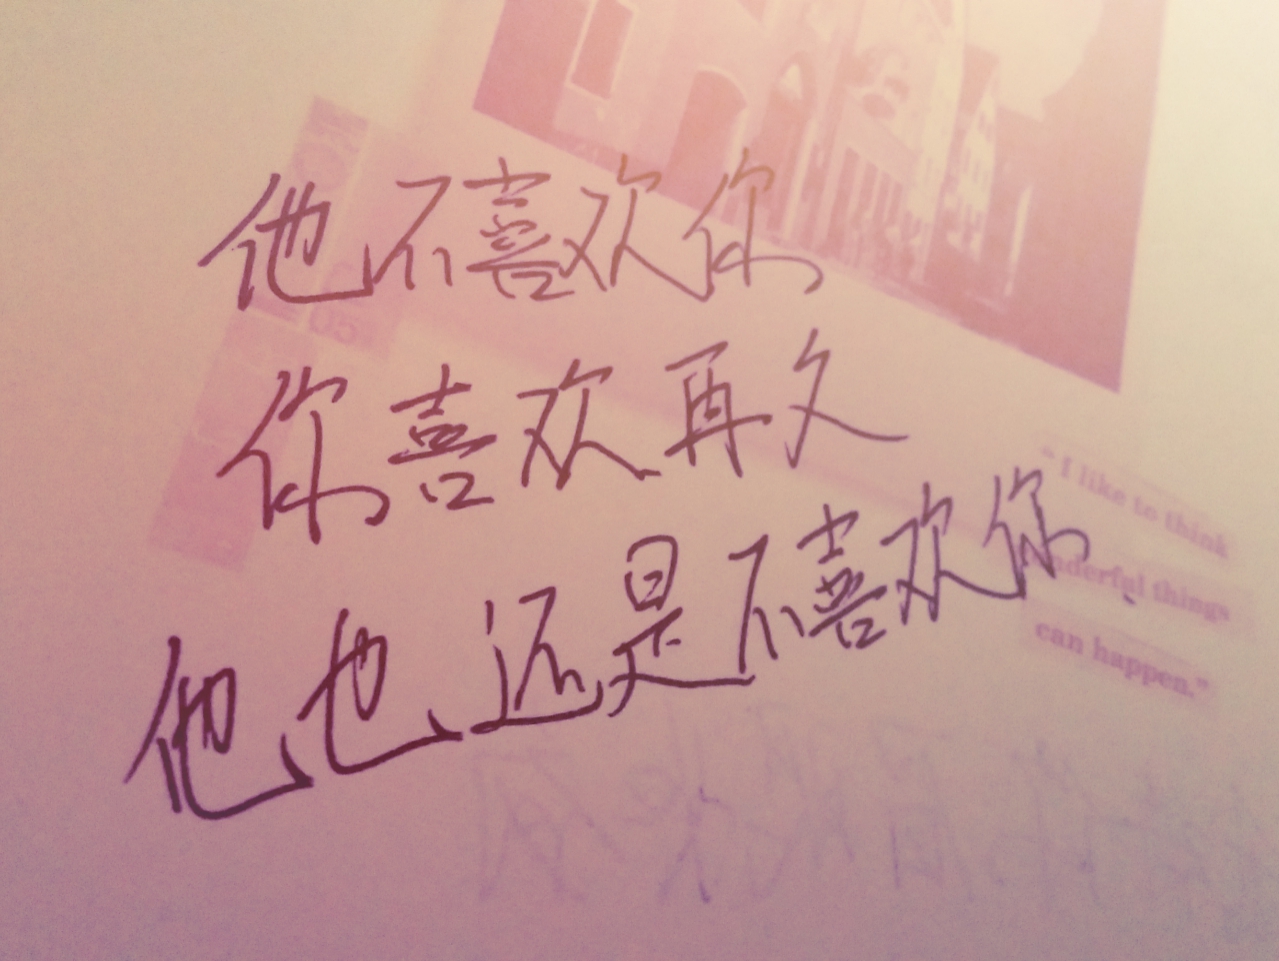 他不喜欢你
你喜欢再久
他也还是不喜欢你
"I like to think
wonderful things
can happen."